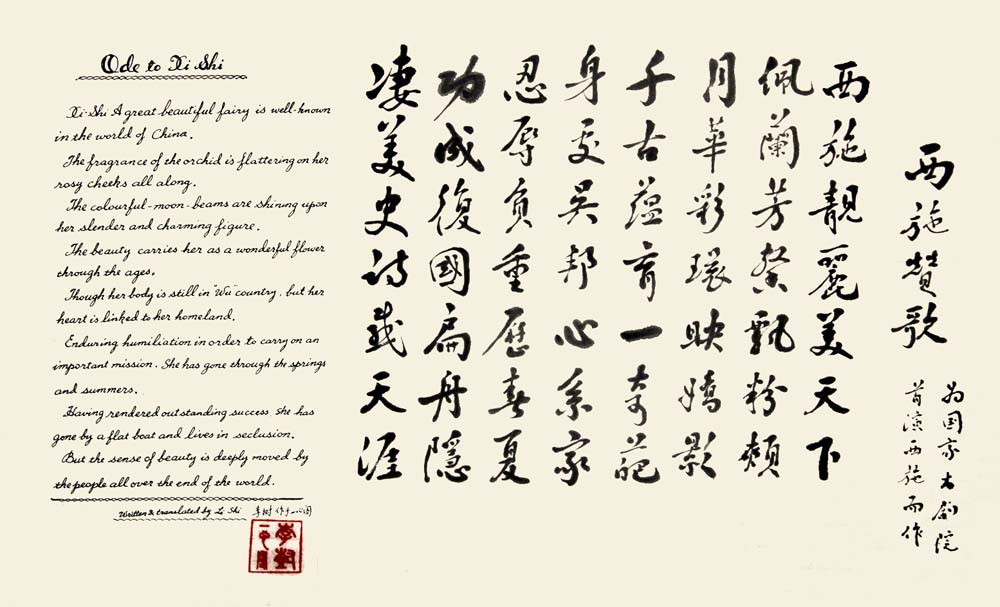 西施贊歌
为国家大剧院
首演西施而作
西施靚麗美天下
佩蘭芳飄粉頰
月華彩環映嬌影
千古蕴育一奇葩
身处吴邦心系家
忍辱負重歷春夏
功成復國扁舟隱
凄美史诗感天涯
Ode to Xi Shi
Xi-Shi A great beautiful fairy is well-known
in the world of China.
The fragrance of the orchid is flattering on her
rosy cheeks all along.
The colourful-moon-beams are shining upon
her slender and charming figure.
The beauty carries her as a wonderful flower
through the ages.
Though her body is still in "Wu" country, but her
heart is linked to her homeland.
Enduring humiliation in order to carry on an
important mission. She has gone through the springs
and summers.
Having rendered outstanding success, she has
gone by a flat boat and lives in seclusion.
But the sense of beauty is deeply moved by
the people all over the end of the world.
Written & translated by Li Shi 李树 作于一心阁